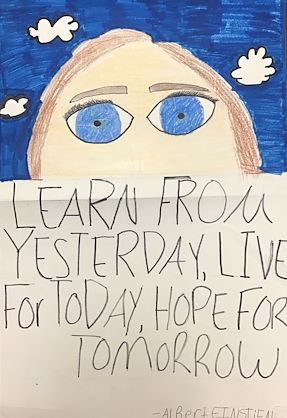 LEARN FROM
YESTERDAY, LIVE
FOR TODAY, HOPE FOR
TOMORROW
-ALBERT EINSTIEN